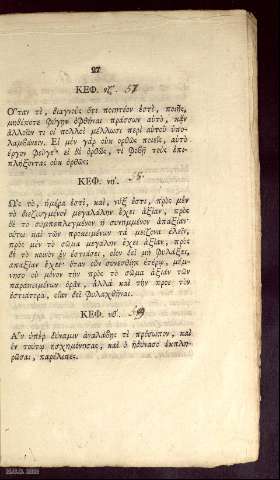 27
ΚΕΦ. νζ'. 57
Ὅταν τὶ, διαγνοὺς ὅτι ποιητέον ἐστὶ, ποιῇς,
μηδέποτε φύγῃν ὀφθῆναι πράσσων αὐτὸ, κἂν
ἀλλοῖόν τι οἱ πολλοὶ μέλλωσι περὶ αὐτοῦ ὑπο-
λαμβάνειν. Εἰ μὲν γὰρ οὐκ ὀρθῶς ποιεῖς, αὐτὸ
ἔργον φεῦγε· εἰ δὲ ὀρθῶς, τί φοβῇ τοὺς ἐπι-
πλήξοντας οὐκ ὀρθῶς;
ΚΕΦ. νη'. 5.
Ὡς τὸ, ἡμέρα ἐστὶ, καὶ, νύξ ἐστι, πρὸς μὲν
τὸ διεζευγμένον μεγάλην ἔχει ἀξίαν, πρὸς
δὲ τὸ συμπεπλεγμένον ἢ συνημμένον ἀπαξίαν·
οὕτω καὶ τῶν προκειμένων τὰ μείζονα ἑλεῖν,
πρὸς μὲν τὸ σῶμα μεγάλην ἔχει ἀξίαν, πρὸς
δὲ τὸ κοινὸν ἐν ἑστιάσει, οἷον δεῖ μὴ φυλάξει,
ἀπαξίαν ἔχει· ὅταν οὖν συνεσθίῃς ἑτέρῳ, μέμ-
νησο οὐ μόνον τὴν πρὸς τὸ σῶμα ἀξίαν τῶν
παρακειμένων ὁρᾶν, ἀλλὰ καὶ τὴν πρὸς τὸν
ἑστιάτορα, οἵαν δεῖ φυλαχθῆναι.
ΚΕΦ. νθ'. 59
Ἂν ὑπὲρ δύναμιν ἀναλάβῃς τὶ πρόσωπον, καὶ
ἐν τούτῳ ἠσχημόνησας, καὶ ὃ ἠδύνασο ἐκπλη-
ρῶσαι, παρέλιπες.